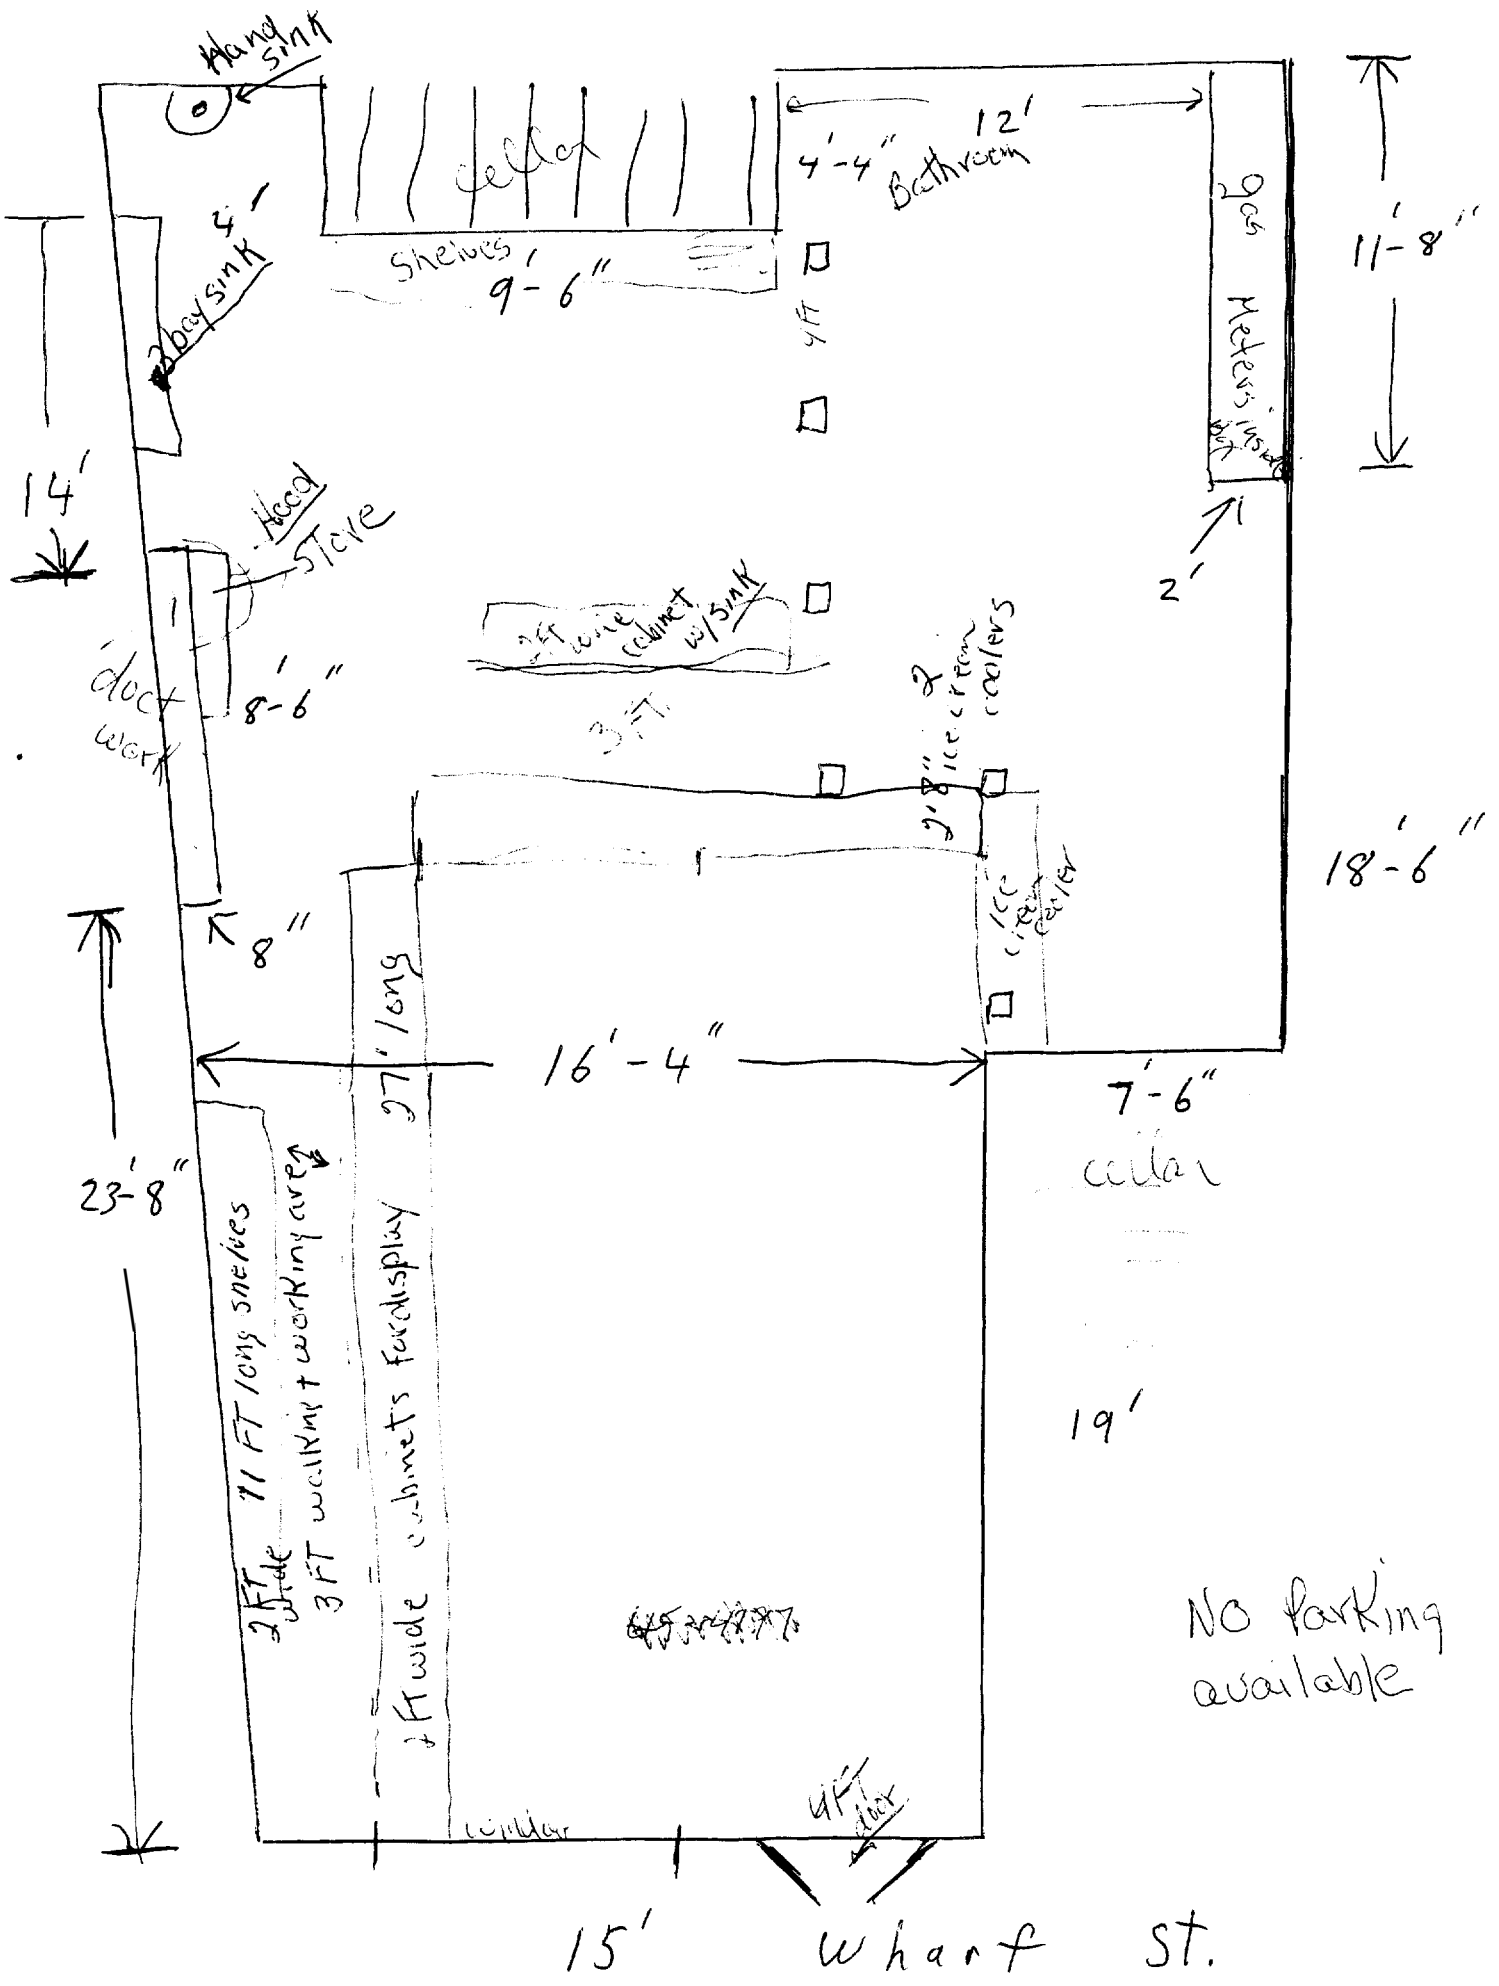 Hand
sink
cellar
12'
4'-4"
Bathroom
gas Meters inside
box
11'-8"
4'
3 bay sink
shelves
9'-6"
4 ft
14'
Hood
stove
2'
2 FT wide
cabinet
w/sink
3 FT.
2
ice cream
coolers
2'8"
duct
work
8'-6"
18'-6"
8"
ice
cream
cooler
16'-4"
7'-6"
cellar
23'-8"
2 FT
wide
11 FT long shelves
3 FT walking + working area
2 FT wide cabinets for display 27' long
19'
No Parking
available
window
4 FT
door
15'
Wharf St.